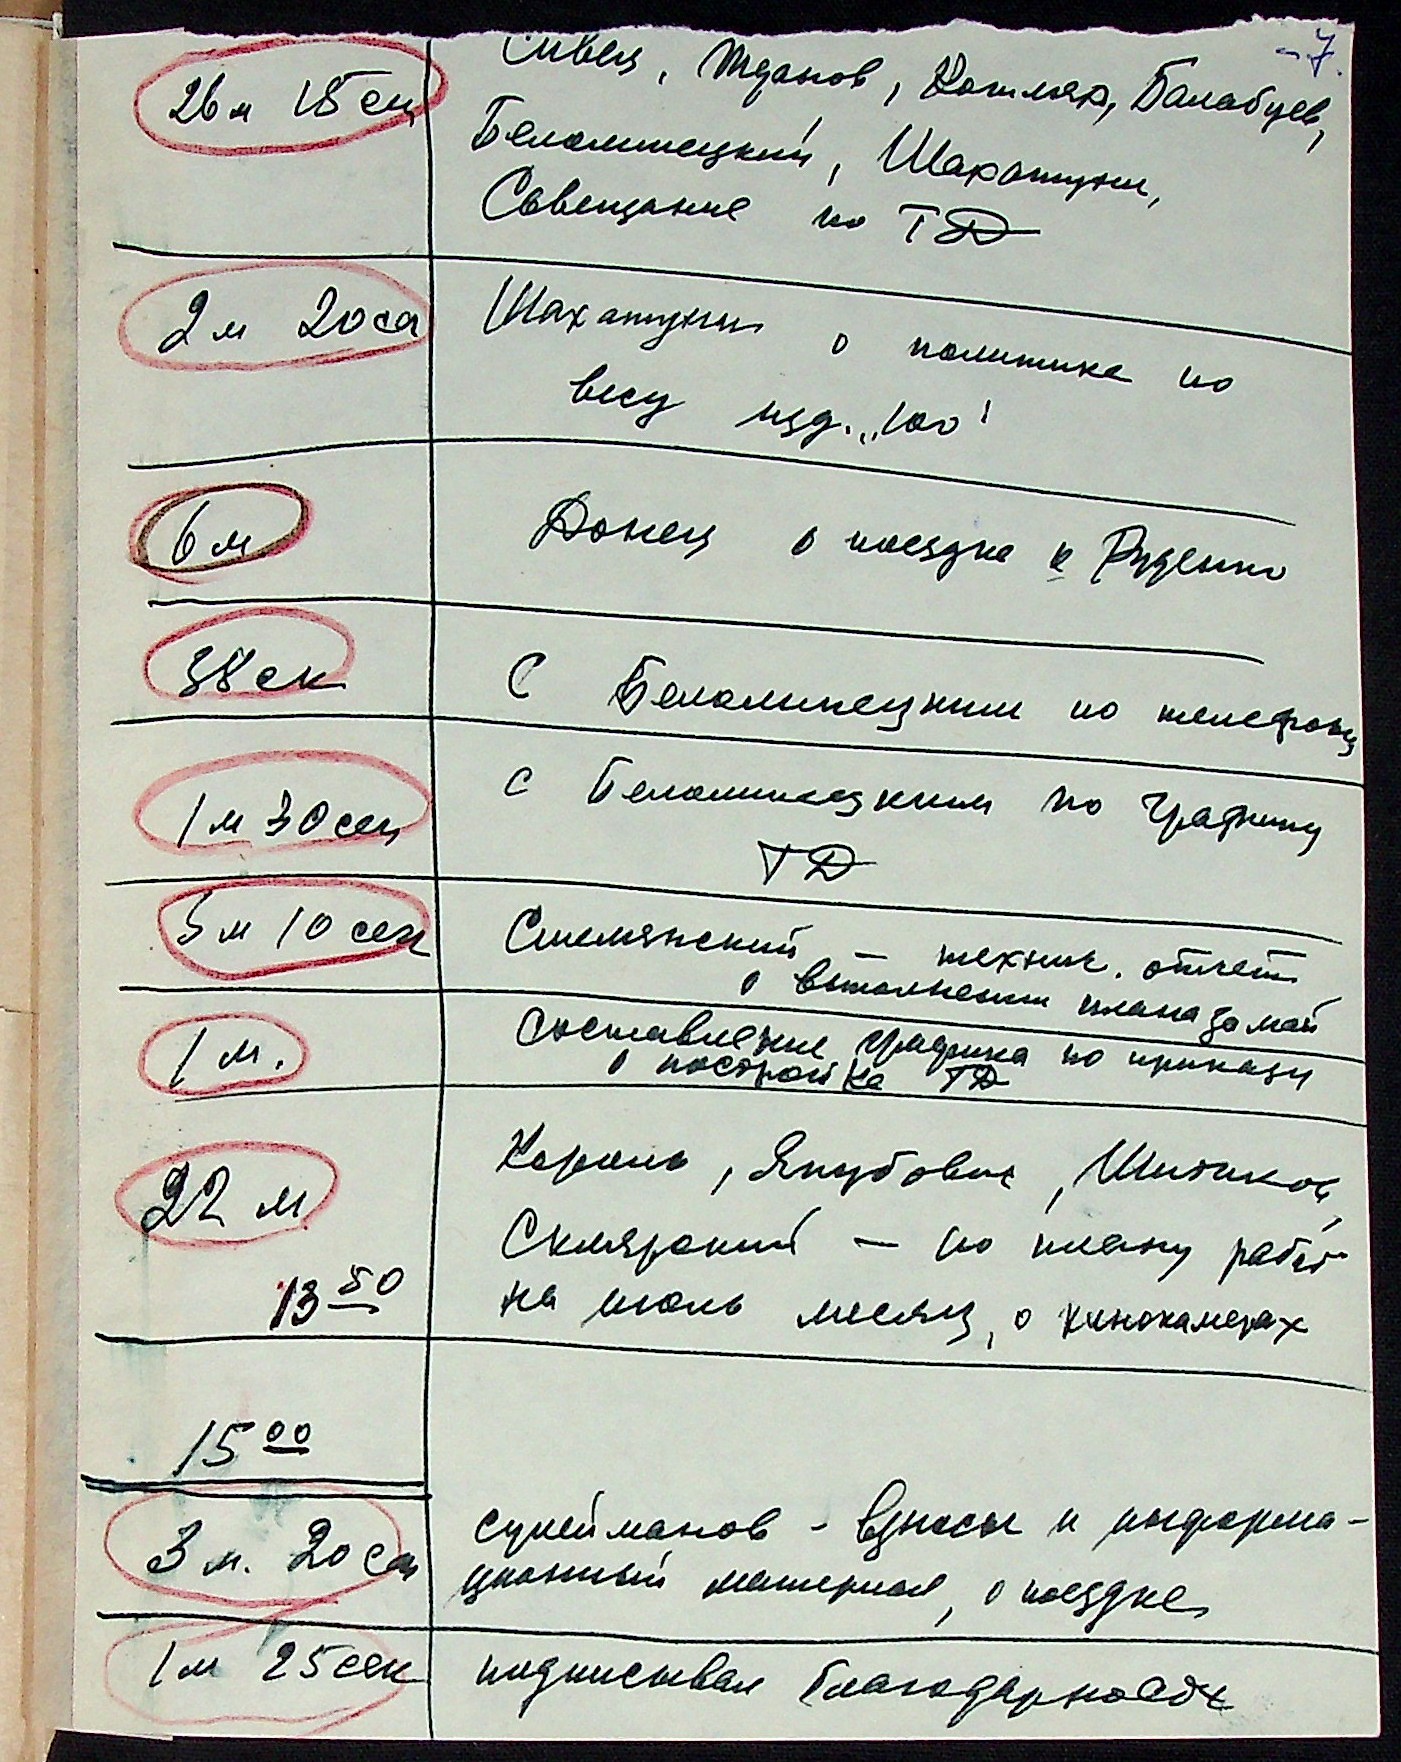 -7.
26 м 15 сек
Сивец, Жданов, Котляр, Балабуев,
Беломестецкий, Шахатуни,
Совещание по ТД
2 м 20 сек
Шахатуни о политике по
весу изд. „100"
6 м
Донец о поездке к Руденко
38 сек
С по телефону
1 м 30 сек
С по графику
ТД
5 м 10 сек
Смелянский - технич. отчет
о выполнении плана за май
1 м.
Составление графика по приказу
о постройке ТД
22 м
Король, Якубович, Шитиков,
Склярский - по плану работ
13 50
на июль месяц, о кинокамерах
15 00
3 м. 20 сек
сулейманов - взносы и информа-
ционный материал, о поездке
1 м 25 сек
подписывал благодарность